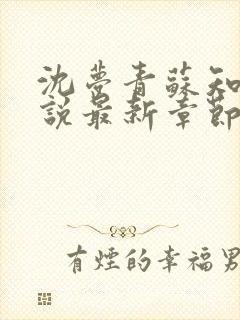 沈夢青蘇知
說最新章節
有煙的幸福男